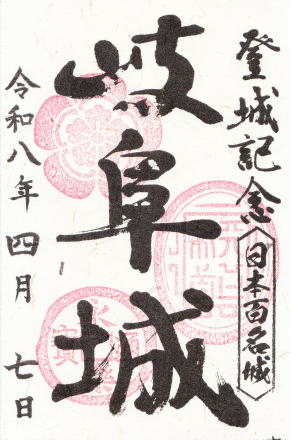 登城記念
日本百名城
岐阜城
令和八年 四月 七日